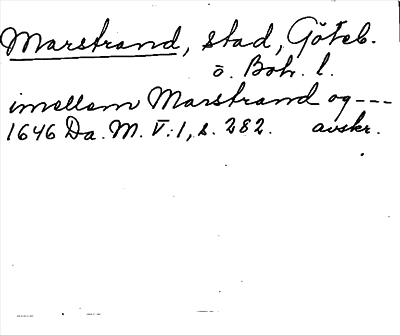 Marstrand, stad, Göteb.
o. Boh. l.
imellem Marstrand og ---
1646 Da. M. V:1, s. 282. avskr.